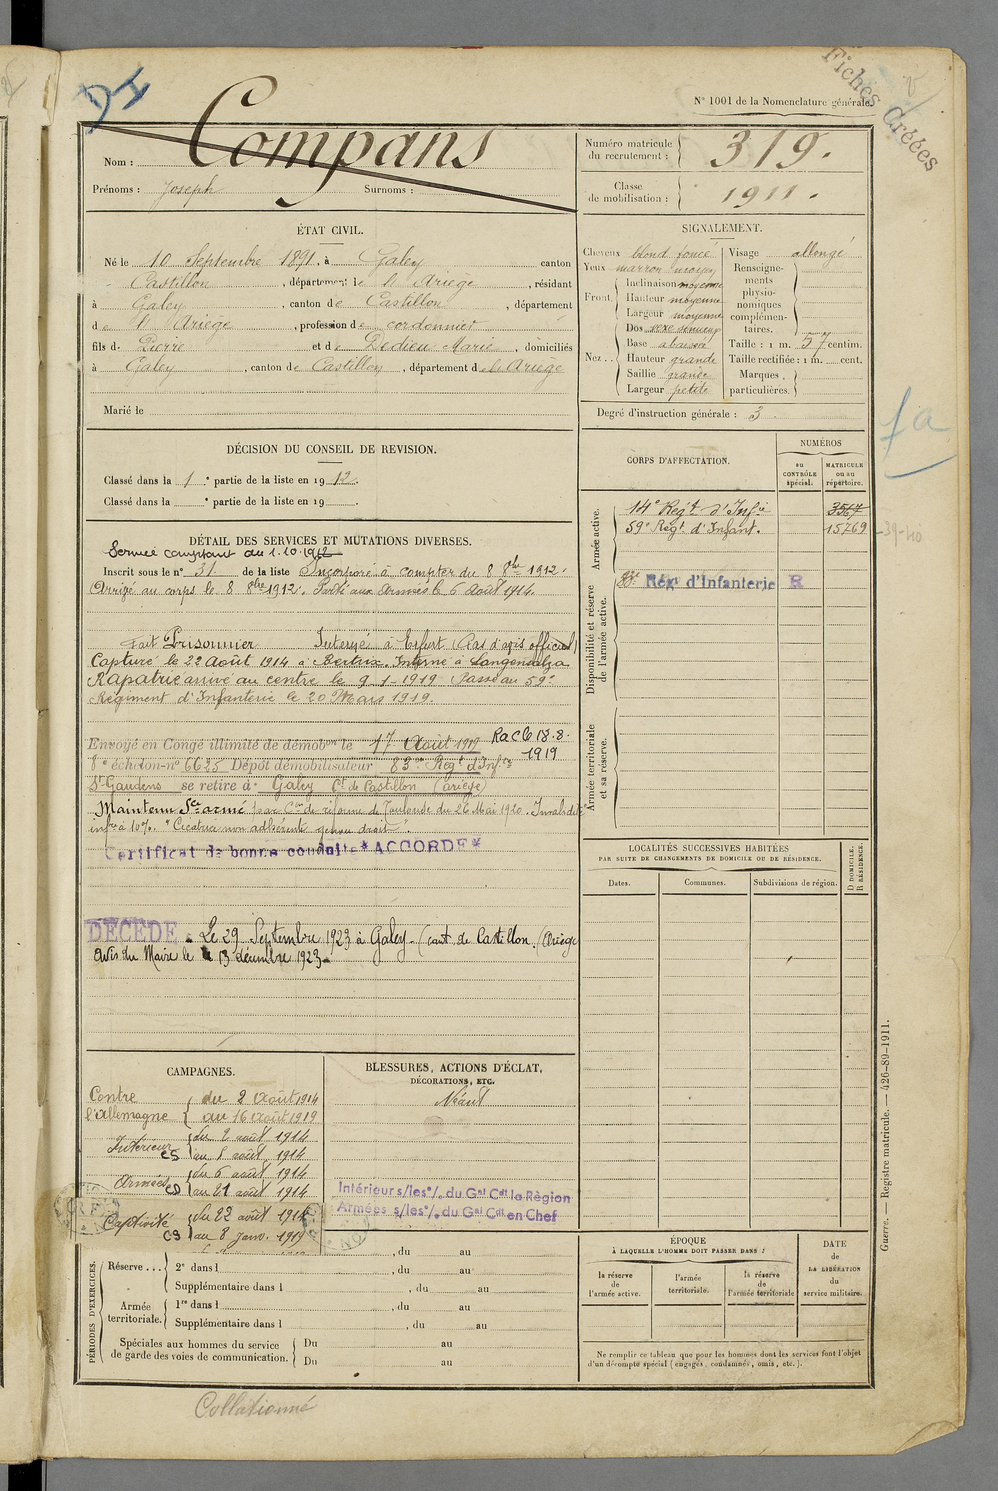 Fiches Créées
N° 1001 de la Nomenclature générale.
Nom : Compans
Prénoms : Joseph Surnoms :
Numéro matricule du recrutement : 319.
Classe de mobilisation : 1911.
ÉTAT CIVIL.
Né le 10 Septembre 1891, à Galey canton
Castillon, département de l'Ariège, résidant
à Galey, canton de Castillon, département
de l'Ariège, profession de cordonnier
fils de Pierre et de Dedieu Marie, domiciliés
à Galey, canton de Castillon, département de l'Ariège
Marié le
SIGNALEMENT.
Cheveux blond foncé Visage allongé
Yeux marron moyen
Front. Inclinaison moyenne
Hauteur moyenne
Largeur moyenne
Nez .. Dos vexe sinueux
Base abaissée
Hauteur grande
Saillie grande
Largeur petite
Renseignements physionomiques complémentaires.
Taille : 1 m. 57 centim.
Taille rectifiée : 1 m. cent.
Marques particulières.
Degré d'instruction générale : 3.
DÉCISION DU CONSEIL DE REVISION.
Classé dans la 1e partie de la liste en 1912.
Classé dans la e partie de la liste en 19
DÉTAIL DES SERVICES ET MUTATIONS DIVERSES.
Service comptant du 1.10.1912
Inscrit sous le n° 31 de la liste Incorporé à compter du 8 8bre 1912.
Arrivé au corps le 8 8bre 1912. Parti aux Armées le 6 Août 1914.
Fait Prisonnier Interné à Erfurt (Pas d'avis officiel)
Capturé le 22 Août 1914 à Bertrix. Interné à Langensalza
Rapatrié arrivé au centre le 9-1-1919 Passé au 59e
Régiment d'Infanterie le 20 Mars 1919.
Envoyé en Congé illimité de démobon le 17 Août 1919 RaClb 18.8.1919
8e échelon-n° 6625 Dépôt démobilisateur 83me Regt d'Infie
St Gaudens se retire à Galey Ct de Castillon (Ariège)
Maintenu Sce armé par Con de réforme de Toulouse du 26 Mai 1920. Invalidité
infre à 10%. "Cicatrice non adhérente genou droit".
Certificat de bonne conduite *ACCORDÉ*
DÉCÉDÉ - Le 29 Septembre 1923 à Galey - (cant. de Castillon, (Ariège
Avis du Maire le 13 décembre 1923 -
CORPS D'AFFECTATION.
NUMÉROS
au CONTRÔLE spécial.
MATRICULE ou au répertoire.
Armée active.
14e Regt d'Infie 3567
59e Regt d'Infant. 15769
39-40
Disponibilité et réserve de l'armée active.
Rég. d'Infanterie R
Armée territoriale et sa réserve.
LOCALITÉS SUCCESSIVES HABITÉES
PAR SUITE DE CHANGEMENTS DE DOMICILE OU DE RÉSIDENCE.
D DOMICILE.
R RÉSIDENCE.
Dates. Communes. Subdivisions de région.
CAMPAGNES.
Contre l'Allemagne du 2 Août 1914
au 16 Août 1919
Intérieur CS du 2 août 1914
au 5 août 1914
Armées CD du 6 août 1914
au 21 août 1914
Captivité CS du 22 août 1914
au 8 janv. 1919
BLESSURES, ACTIONS D'ÉCLAT,
DÉCORATIONS, ETC.
Néant
Intérieur s/les°/. du Gal Cdt la Région
Armées s/les°/. du Gal Cdt en Chef
PÉRIODES D'EXERCICES.
, du au
Réserve ... 2e dans l , du au
Supplémentaire dans l , du au
Armée territoriale. 1re dans l , du au
Supplémentaire dans l , du au
Spéciales aux hommes du service de garde des voies de communication. Du au
Du au
ÉPOQUE
À LAQUELLE L'HOMME DOIT PASSER DANS :
la réserve de l'armée active.
l'armée territoriale.
la réserve de l'armée territoriale
DATE de LA LIBÉRATION du service militaire.
Ne remplir ce tableau que pour les hommes dont les services font l'objet
d'un décompte spécial (engagés, condamnés, omis, etc.).
Guerre. — Registre matricule. — 426-89-1911.
Collationné